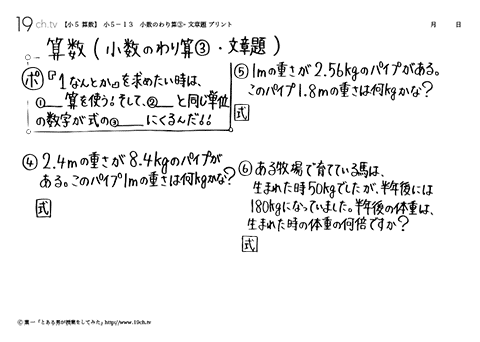 19ch.tv 【小5 算数】 小5－13 小数のわり算③・文章題 プリント 月 日
算数（小数のわり算③・文章題）
ポ 『1なんとか』を求めたい時は、
①＿算を使う!そして、②＿と同じ単位
の数字が式の③＿にくるんだ!!
④ 2.4mの重さが8.4kgのパイプが
ある。このパイプ1mの重さは何kgかな?
式
⑤ 1mの重さが2.56kgのパイプがある。
このパイプ1.8mの重さは何kgかな?
式
⑥ ある牧場で育てている馬は、
生まれた時50kgでしたが、半年後には
180kgになっていました。半年後の体重は、
生まれた時の体重の何倍ですか?
式
Ⓒ 葉一「とある男が授業をしてみた」http://www.19ch.tv